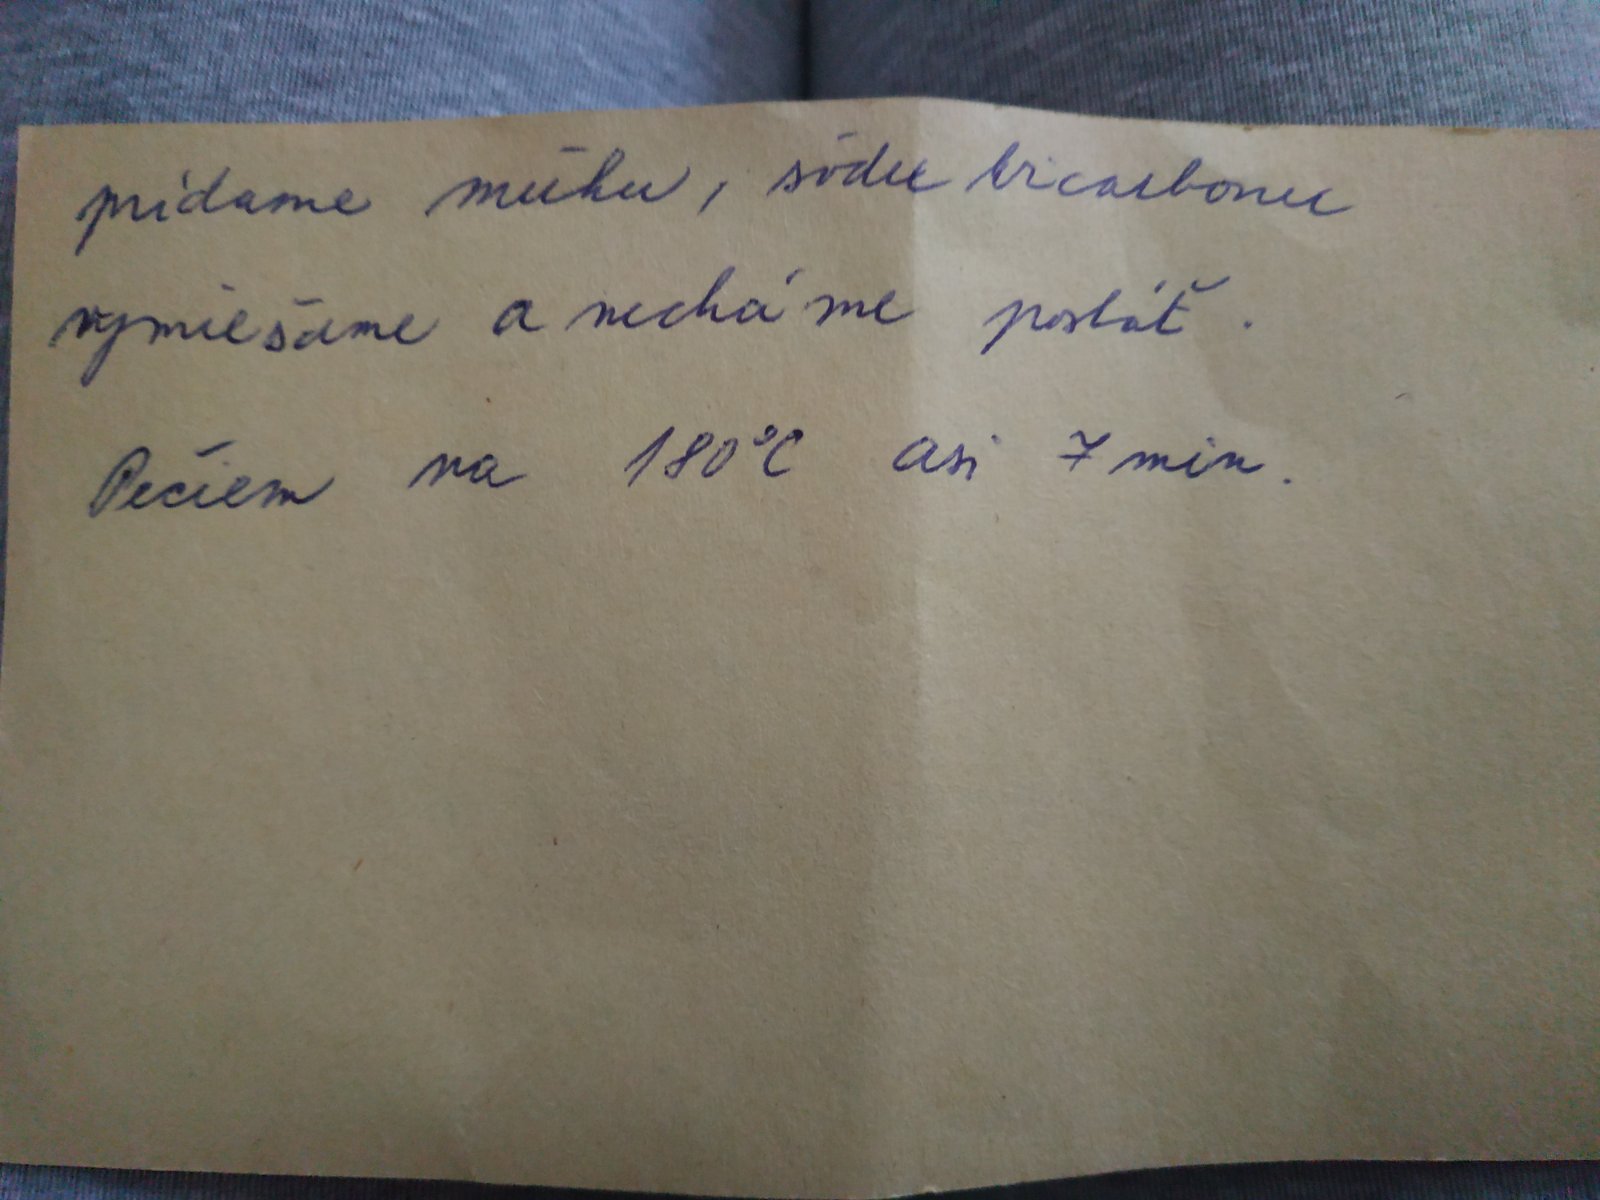 pridame múku, sódu bicarbonu
vymiešame a necháme postáť.
Pečiem na 180°C asi 7 min.